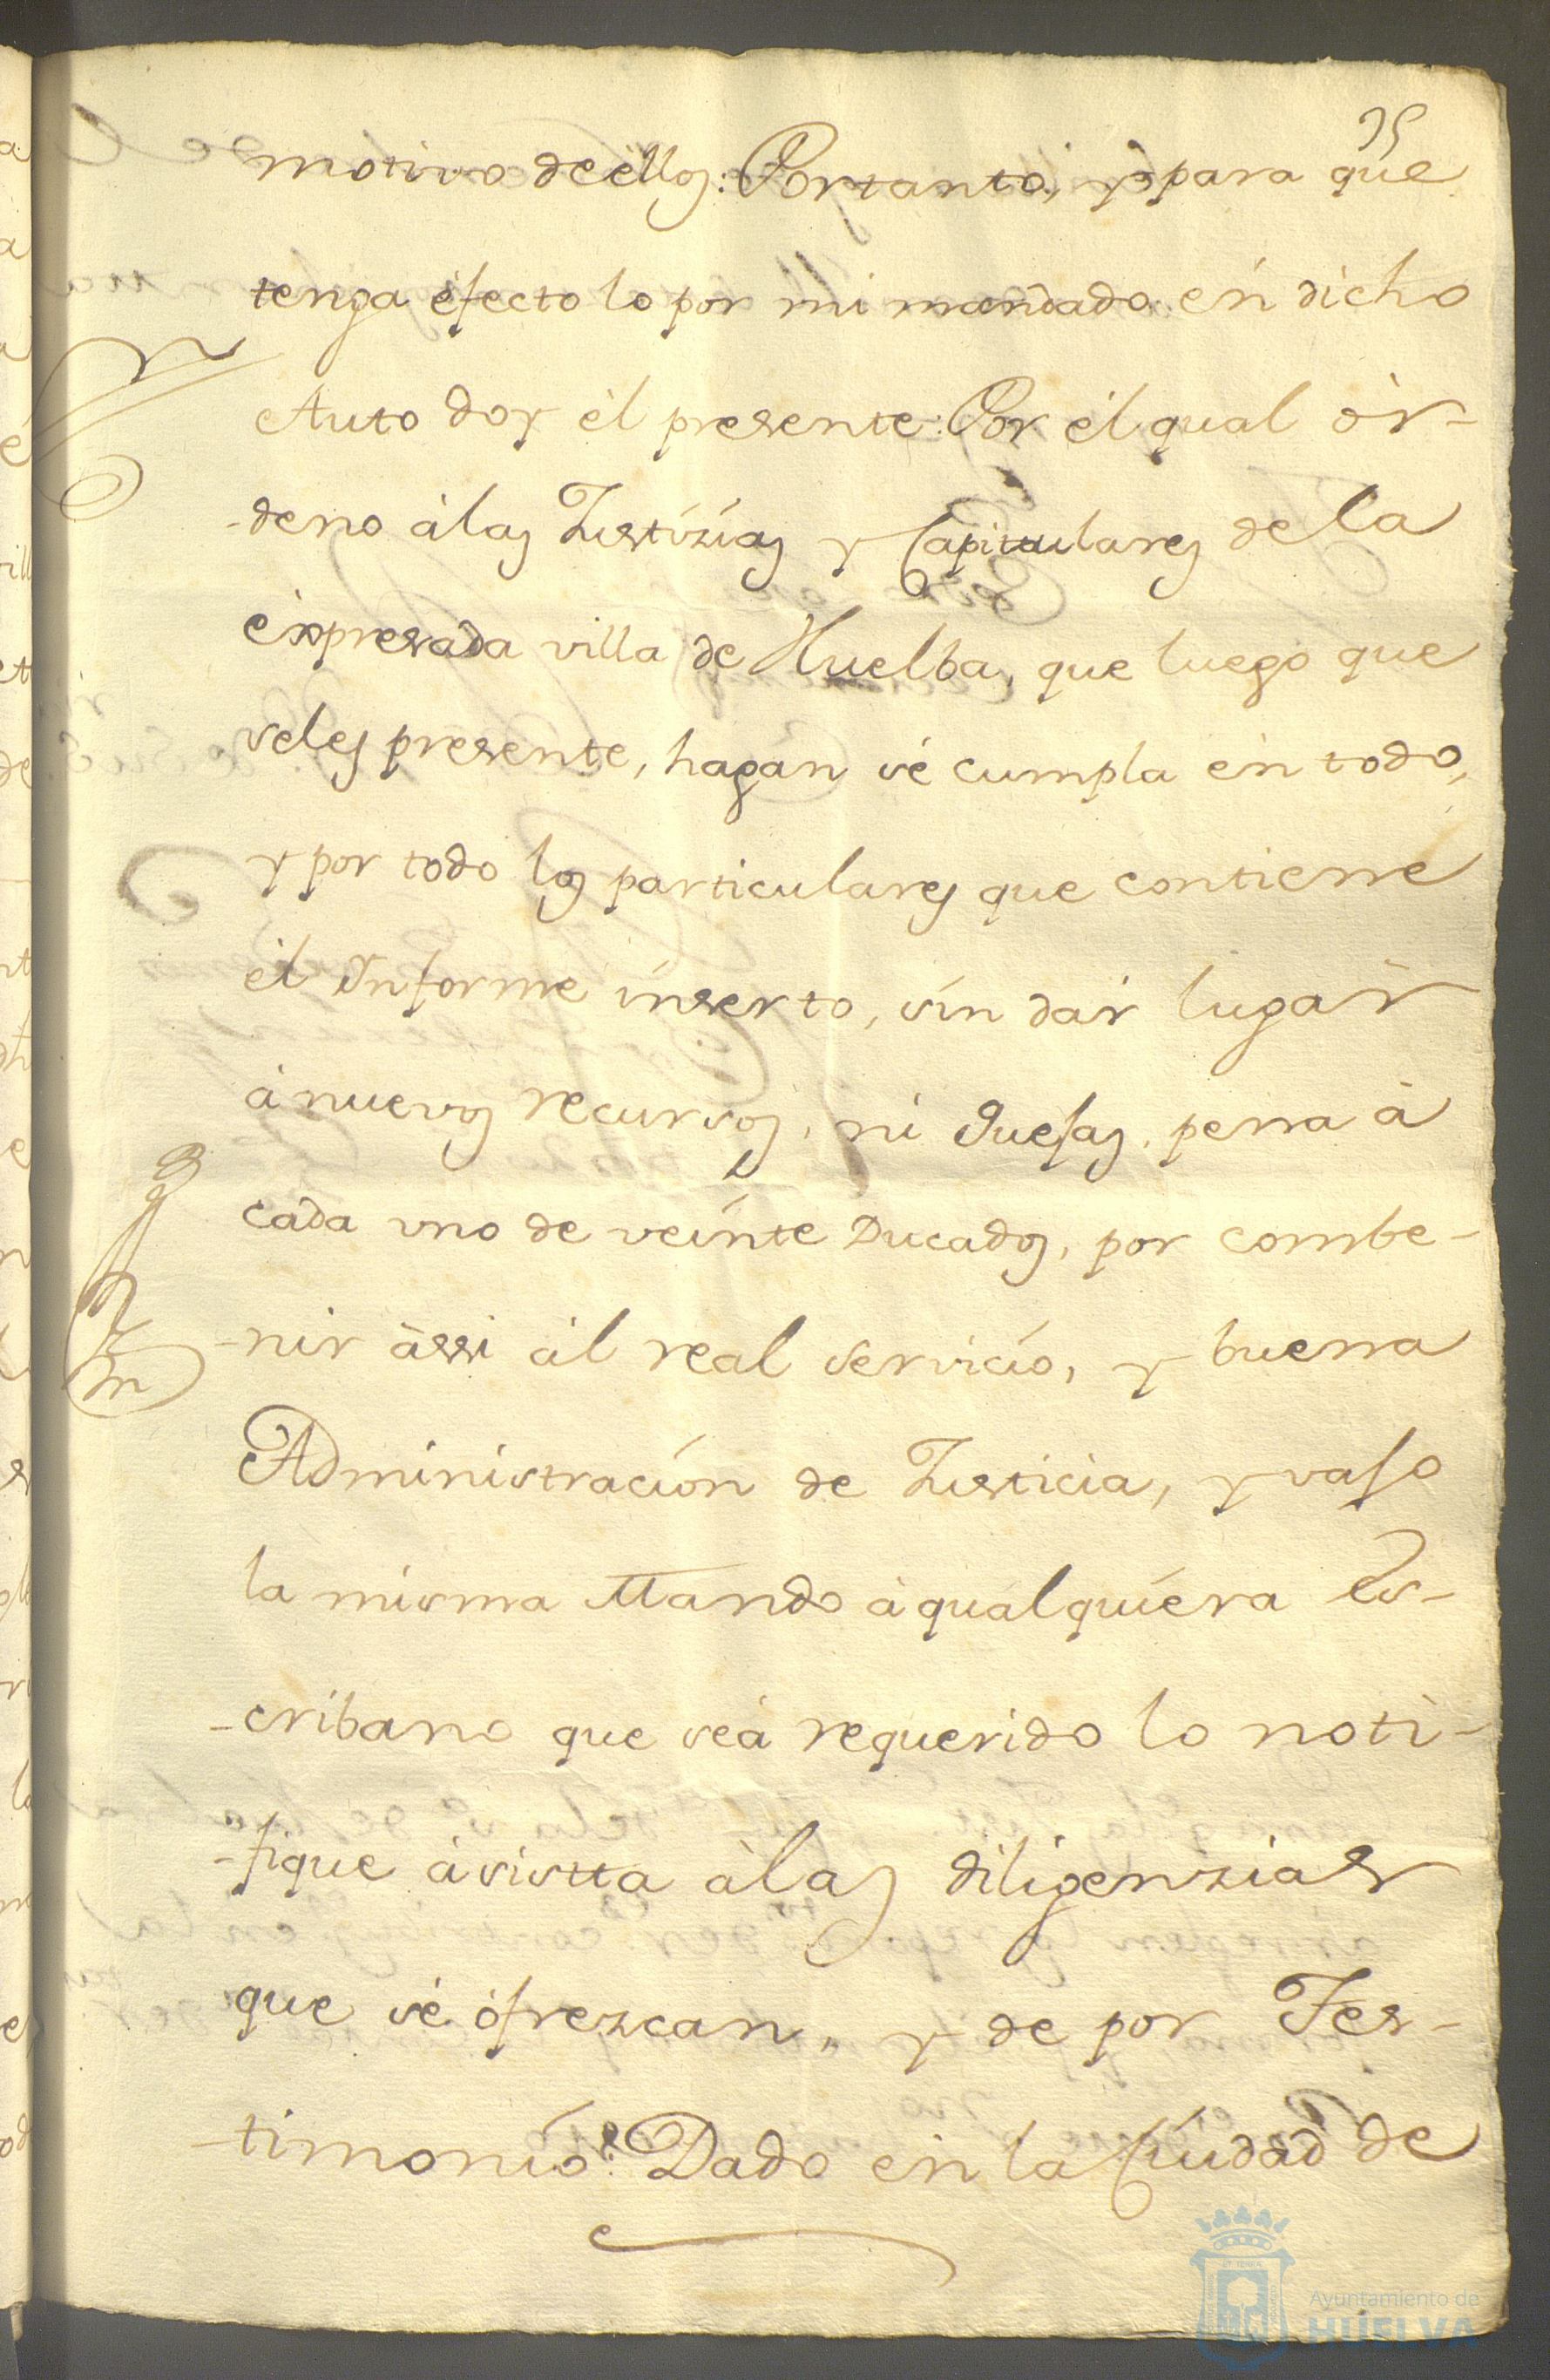 35
motivo de éllos: Por tanto, y para que
tenga éfecto lo por mi mandado én dicho
Auto doy él presente: Por él qual òr-
-deno à las Justizias y Capitulares de la
éxpresada villa de Huelba, que luego que
se les presente, hagan sé cumpla én todo,
y por todo los particulares que contiene
él Informe inserto, sin dar lugar
à nuevos recursos, ni Quejas, pena à
cada uno de veinte Ducados, por combe-
-nir àssi àl real servicio, y buena
Administracion de Justicia, y vajo
la misma Mando à qualquiera Es-
-cribano que seà requerido lo noti-
-fique àsistta à las diligenzias
que sé òfrezcan, y de por Tes-
-timonio: Dado én la Ciudad de
Ayuntamiento de
HUELVA